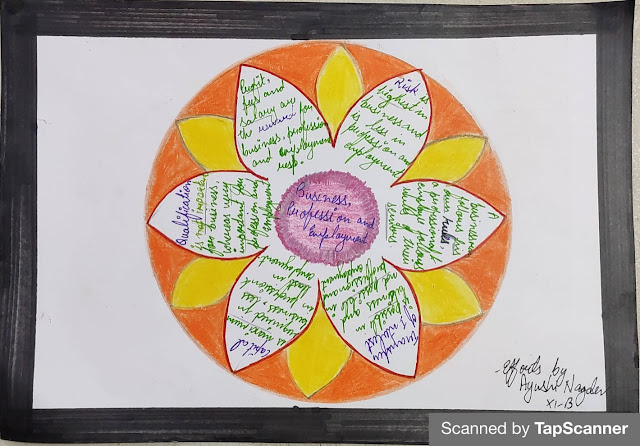 Business,
Profession and
Employment
Profit,
fees and
salary are
the reward for
business, profession
and employment
resp.
Risk is
highest in
business and
is less in
profession and
employment
A
businessman
follows his
own rules,
a professional &
employee follows
rules of their
seniors
Transfer
of Interest
is possible in
business and
not possible in
profession and
employment
Capital
is maximum
required in
business, less
in profession
least in
employment
Qualification
is not necessary
for business,
whereas very
important for
profession and
employment
efforts by
Ayushi Nagdev
XI-B
Scanned by TapScanner